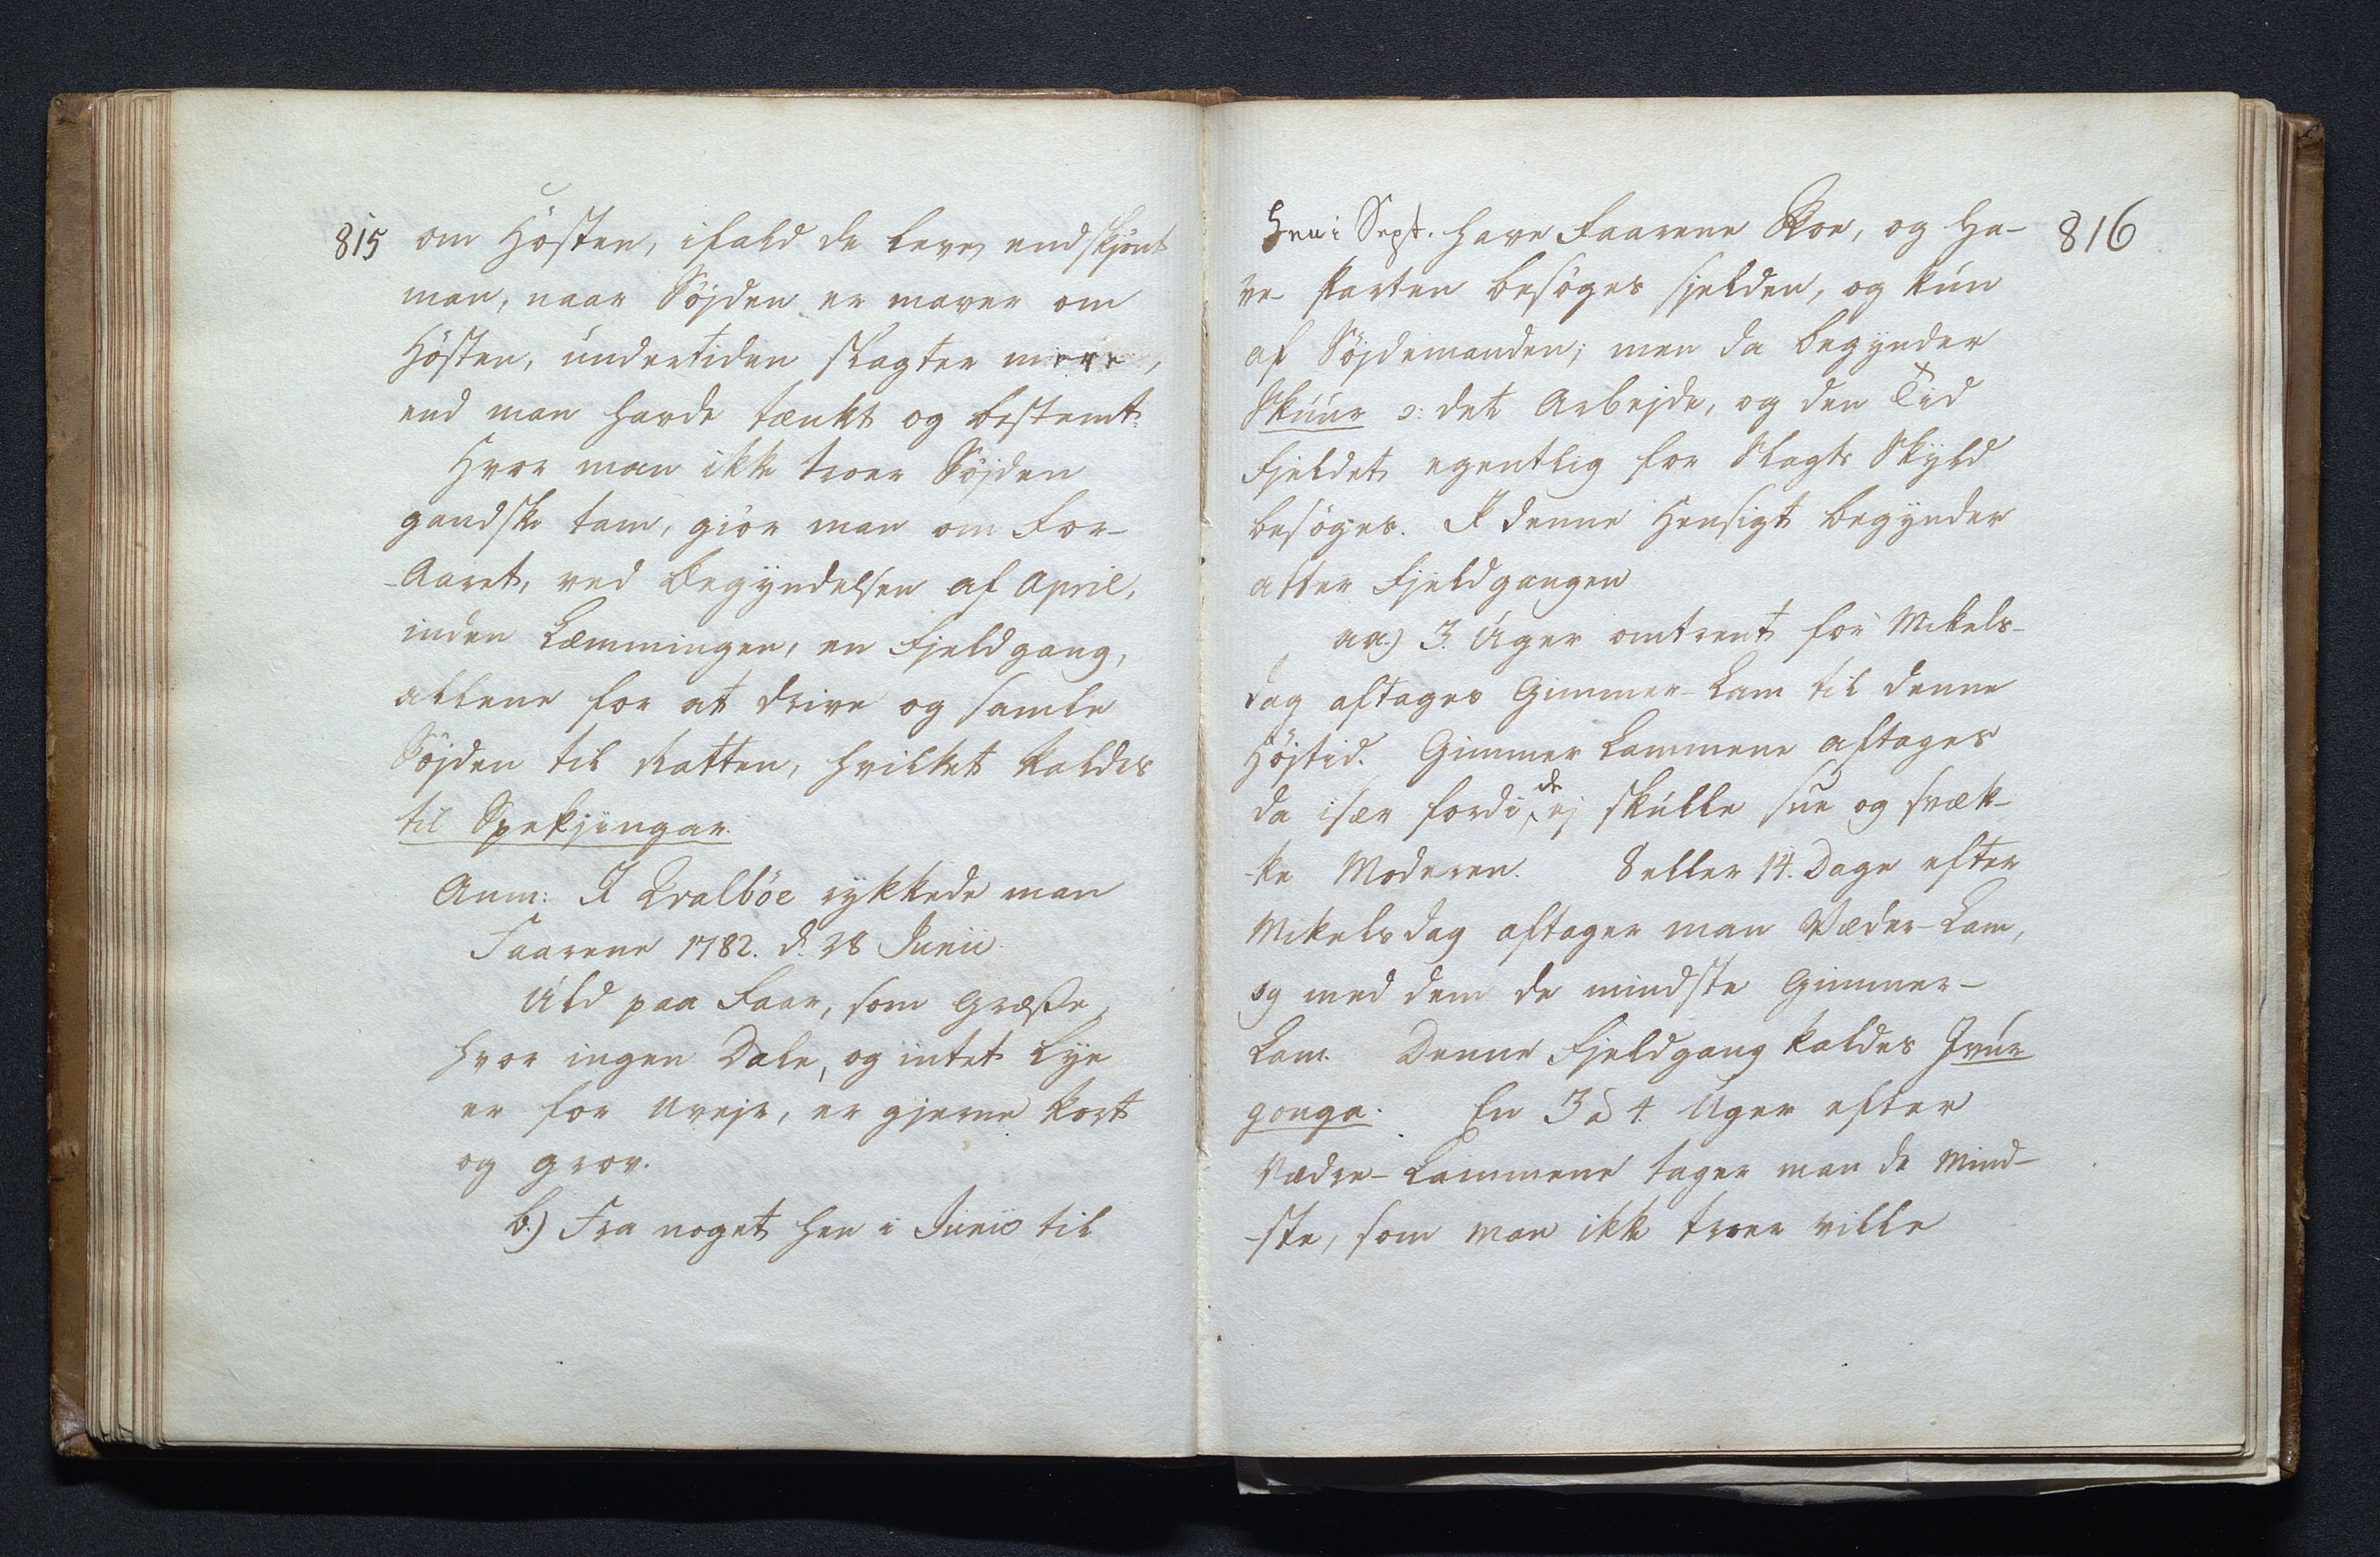 815
om Hösten, ifald de leve, endskjönt
man, naar Söjden er maver om
Hösten, undertiden slagter mere,
end man havde tænkt og bestemt.
Hvor man ikke troer Söjden
gandske tam, giör man om For-
-Aaret, ved Begyndelsen af April,
inden Læmmingen, en Fjeldgang,
allene for at drive og samle
Söjden til Ratten, hvilket kaldes
til Spekjingar.
Anm: I Qvalböe rykkede man
Faarene 1782. d. 28 Junii.
Uld paa Faar, som græsse,
hvor ingen Dale, og intet Lye
er for Uvejr, er gjerne kort
og grov.
b.) Fra noget hen i Junio til
816
hen i Sept. have Faarene Roe, og Ha-
ve-Parten besöges sjelden, og kun
af Söjdemanden; men da begynder
Skuur ɔ: det Arbejde, og den Tid
Fjeldet egentlig for Slagts Skyld
besöges. I denne Hensigt begynder
atter Fjeldgangen
aa.) 3. Uger omtrent för Mikels-
dag aftages Gimmer-Lam til denne
Höjtid. Gimmer Lammene aftages
da især fordi de ej skulle sue og svæk-
-ke Moderen. 8 eller 14. Dage efter
Mikelsdag aftager man Væder-Lam,
og med dem de mindste Gimmer-
Lam. Denne Fjeldgang kaldes Jvur
gonga. En 3 à 4. Uger efter
Vædre-Lammene tager man de Mind-
-ste, som man ikke troer ville